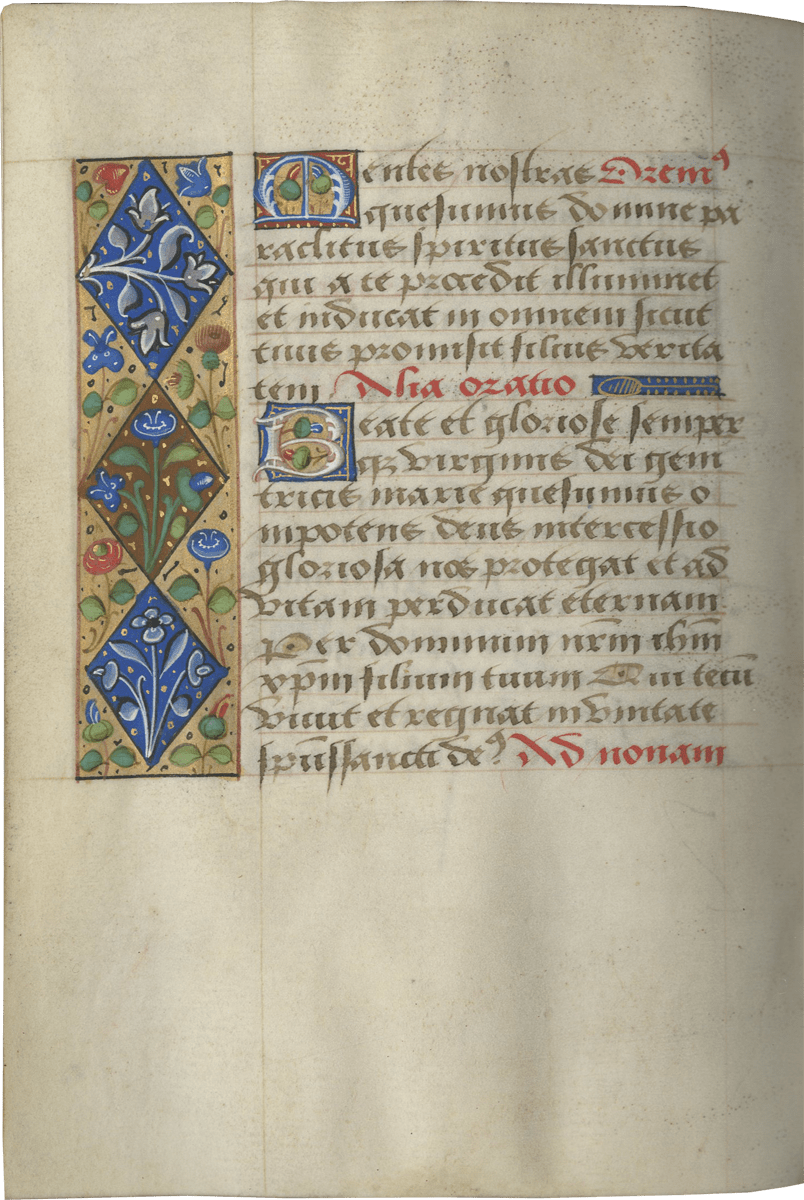 Mentes nostras Orem⁹
quesumus domine pa
raclitus spiritus sanctus
qui a te procedit illuminet
et inducat in omnem sicut
tuus promisit filius verita
tem. Alia oratio
Beate et gloriose semper
q; virginis dei geni
tricis marie quesumus o
mpotens deus intercessio
gloriosa nos protegat et ad
vitam perducat eternam.
Per dominum nr̄m ihm̄
xp̄m filium tuum Qui tecū
vivit et regnat in unitate
sp̄us sancti de⁹. Ad nonam